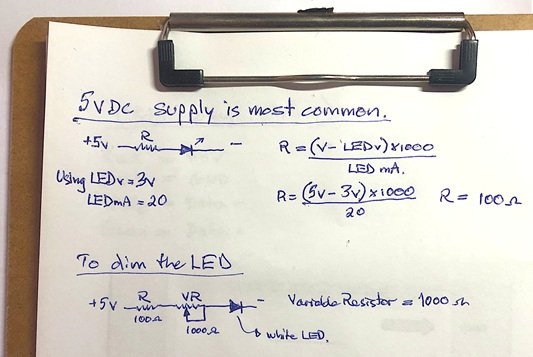 5VDC supply is most common.
+5v R −
R = (V - LEDv) x1000
LED mA.
Using LEDv = 3v
LEDmA = 20
R = (5v - 3v) x 1000
20
R = 100Ω
To dim the LED
+5v R VR −
100Ω 1000Ω
Variable Resistor = 1000Ω
white LED.